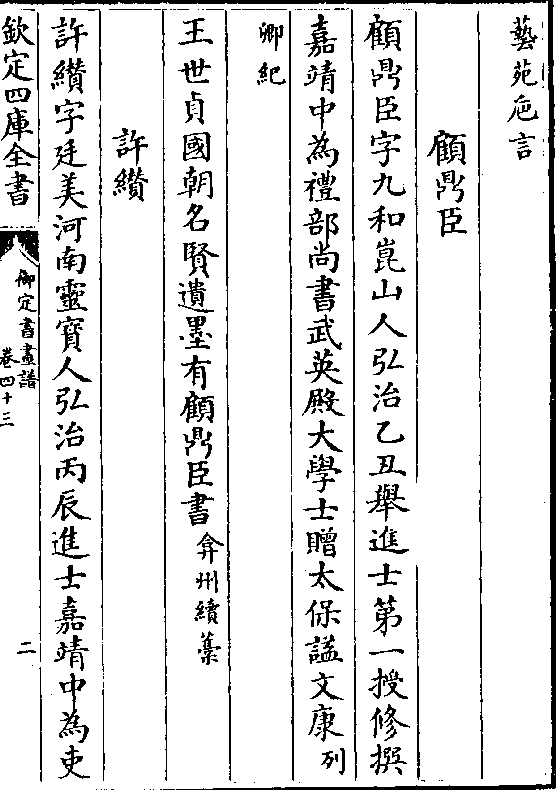 藝苑卮言
顧鼎臣
顧鼎臣字九和崑山人弘治乙丑舉進士第一授修撰
嘉靖中為禮部尚書武英殿大學士贈太保諡文康列
卿紀
王世貞國朝名賢遺墨有顧鼎臣書弇州續藁
許纘
許纘字廷美河南靈寶人弘治丙辰進士嘉靖中為吏
欽定四庫全書
御定書畫譜
卷四十三
二